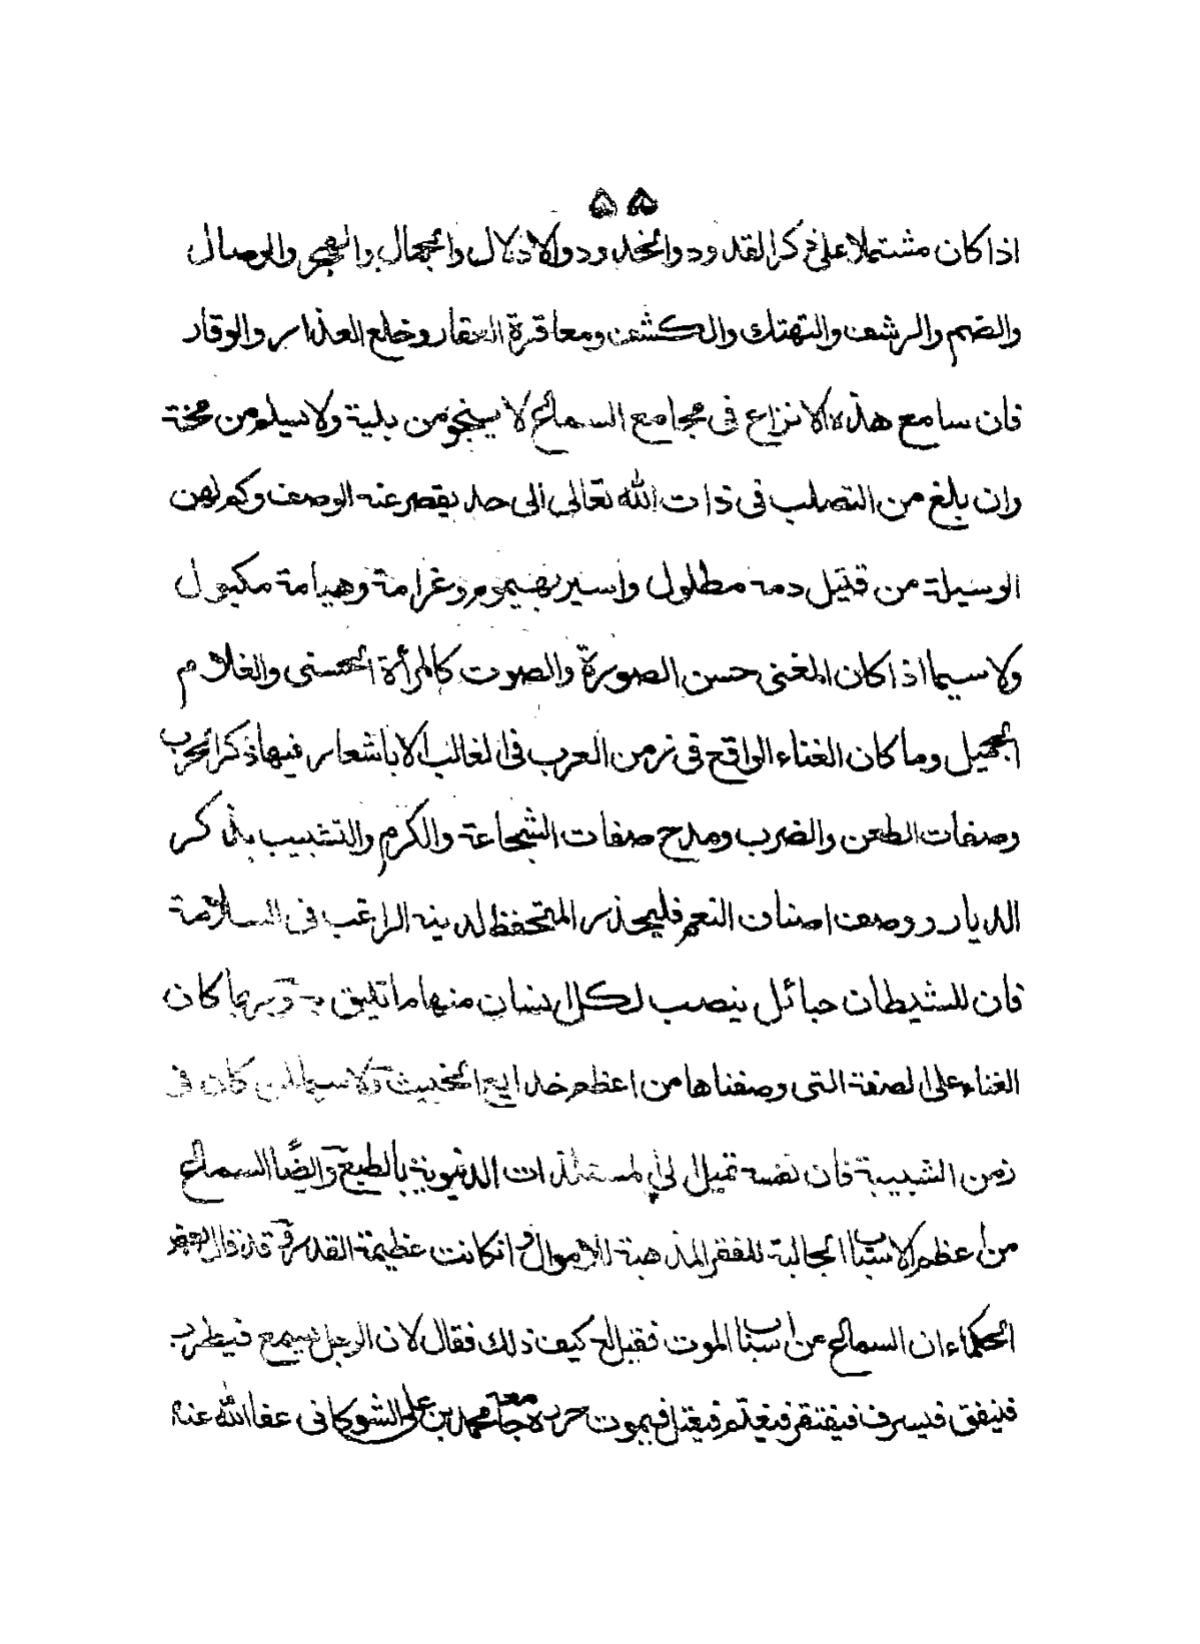 ۵۵
اذا كان مشتملا على ذكر القدود والخدود والادلال والجمال والهجر والوصال
والضم والرشف والتهتك والكشف ومعاقرة العقار وخلع العذار والوقار
فان سامع هذه الانزاع فى مجامع السماع لا ينجو من بلية ولا سيلم من محنة
وان بلغ من التصلب فى ذات الله تعالى الى حد يقصر عنه الوصف وكم لهن
الوسيلة من قتيل دمه مطلول واسير بهيموم وغرامة وهيامة مكبول
ولا سيما اذا كان المغنى حسن الصورة والصوت كالمرأة الحسنى والغلام
الجميل وما كان الغناء الواقع فى زمن العرب فى الغالب الا باشعار فيها ذكر الحرب
وصفات الطعن والضرب ومدح صفات الشجاعة والكرم والتشبيب بذكر
الديار ووصف اصناف النعم فليحذر المتحفظ لدينه الراغب فى السلامة
فان للشيطان حبائل ينصب لكل انسان منها ما تليق به وربما كان
الغناء على الصفة التى وصفناها من اعظم خدايع الخبيث ولا سيما لمن كان فى
زمن الشبيبة فان نفسه تميل الى المستلذات الدنيوية بالطبع وايضًا السماع
من اعظم الاسباب الجالبة للفقر المذهبة للاموال وانكانت عظيمة القدر وقد قال بعض
الحكماء ان السماع من اسباب الموت فقيل له كيف ذلك فقال لان الرجل يسمع فيطرب
فينفق فيسرف فيفتقر فيغتم فيعتل فيموت حرره جامعه محمد بن على الشوكانى عفا الله عنه